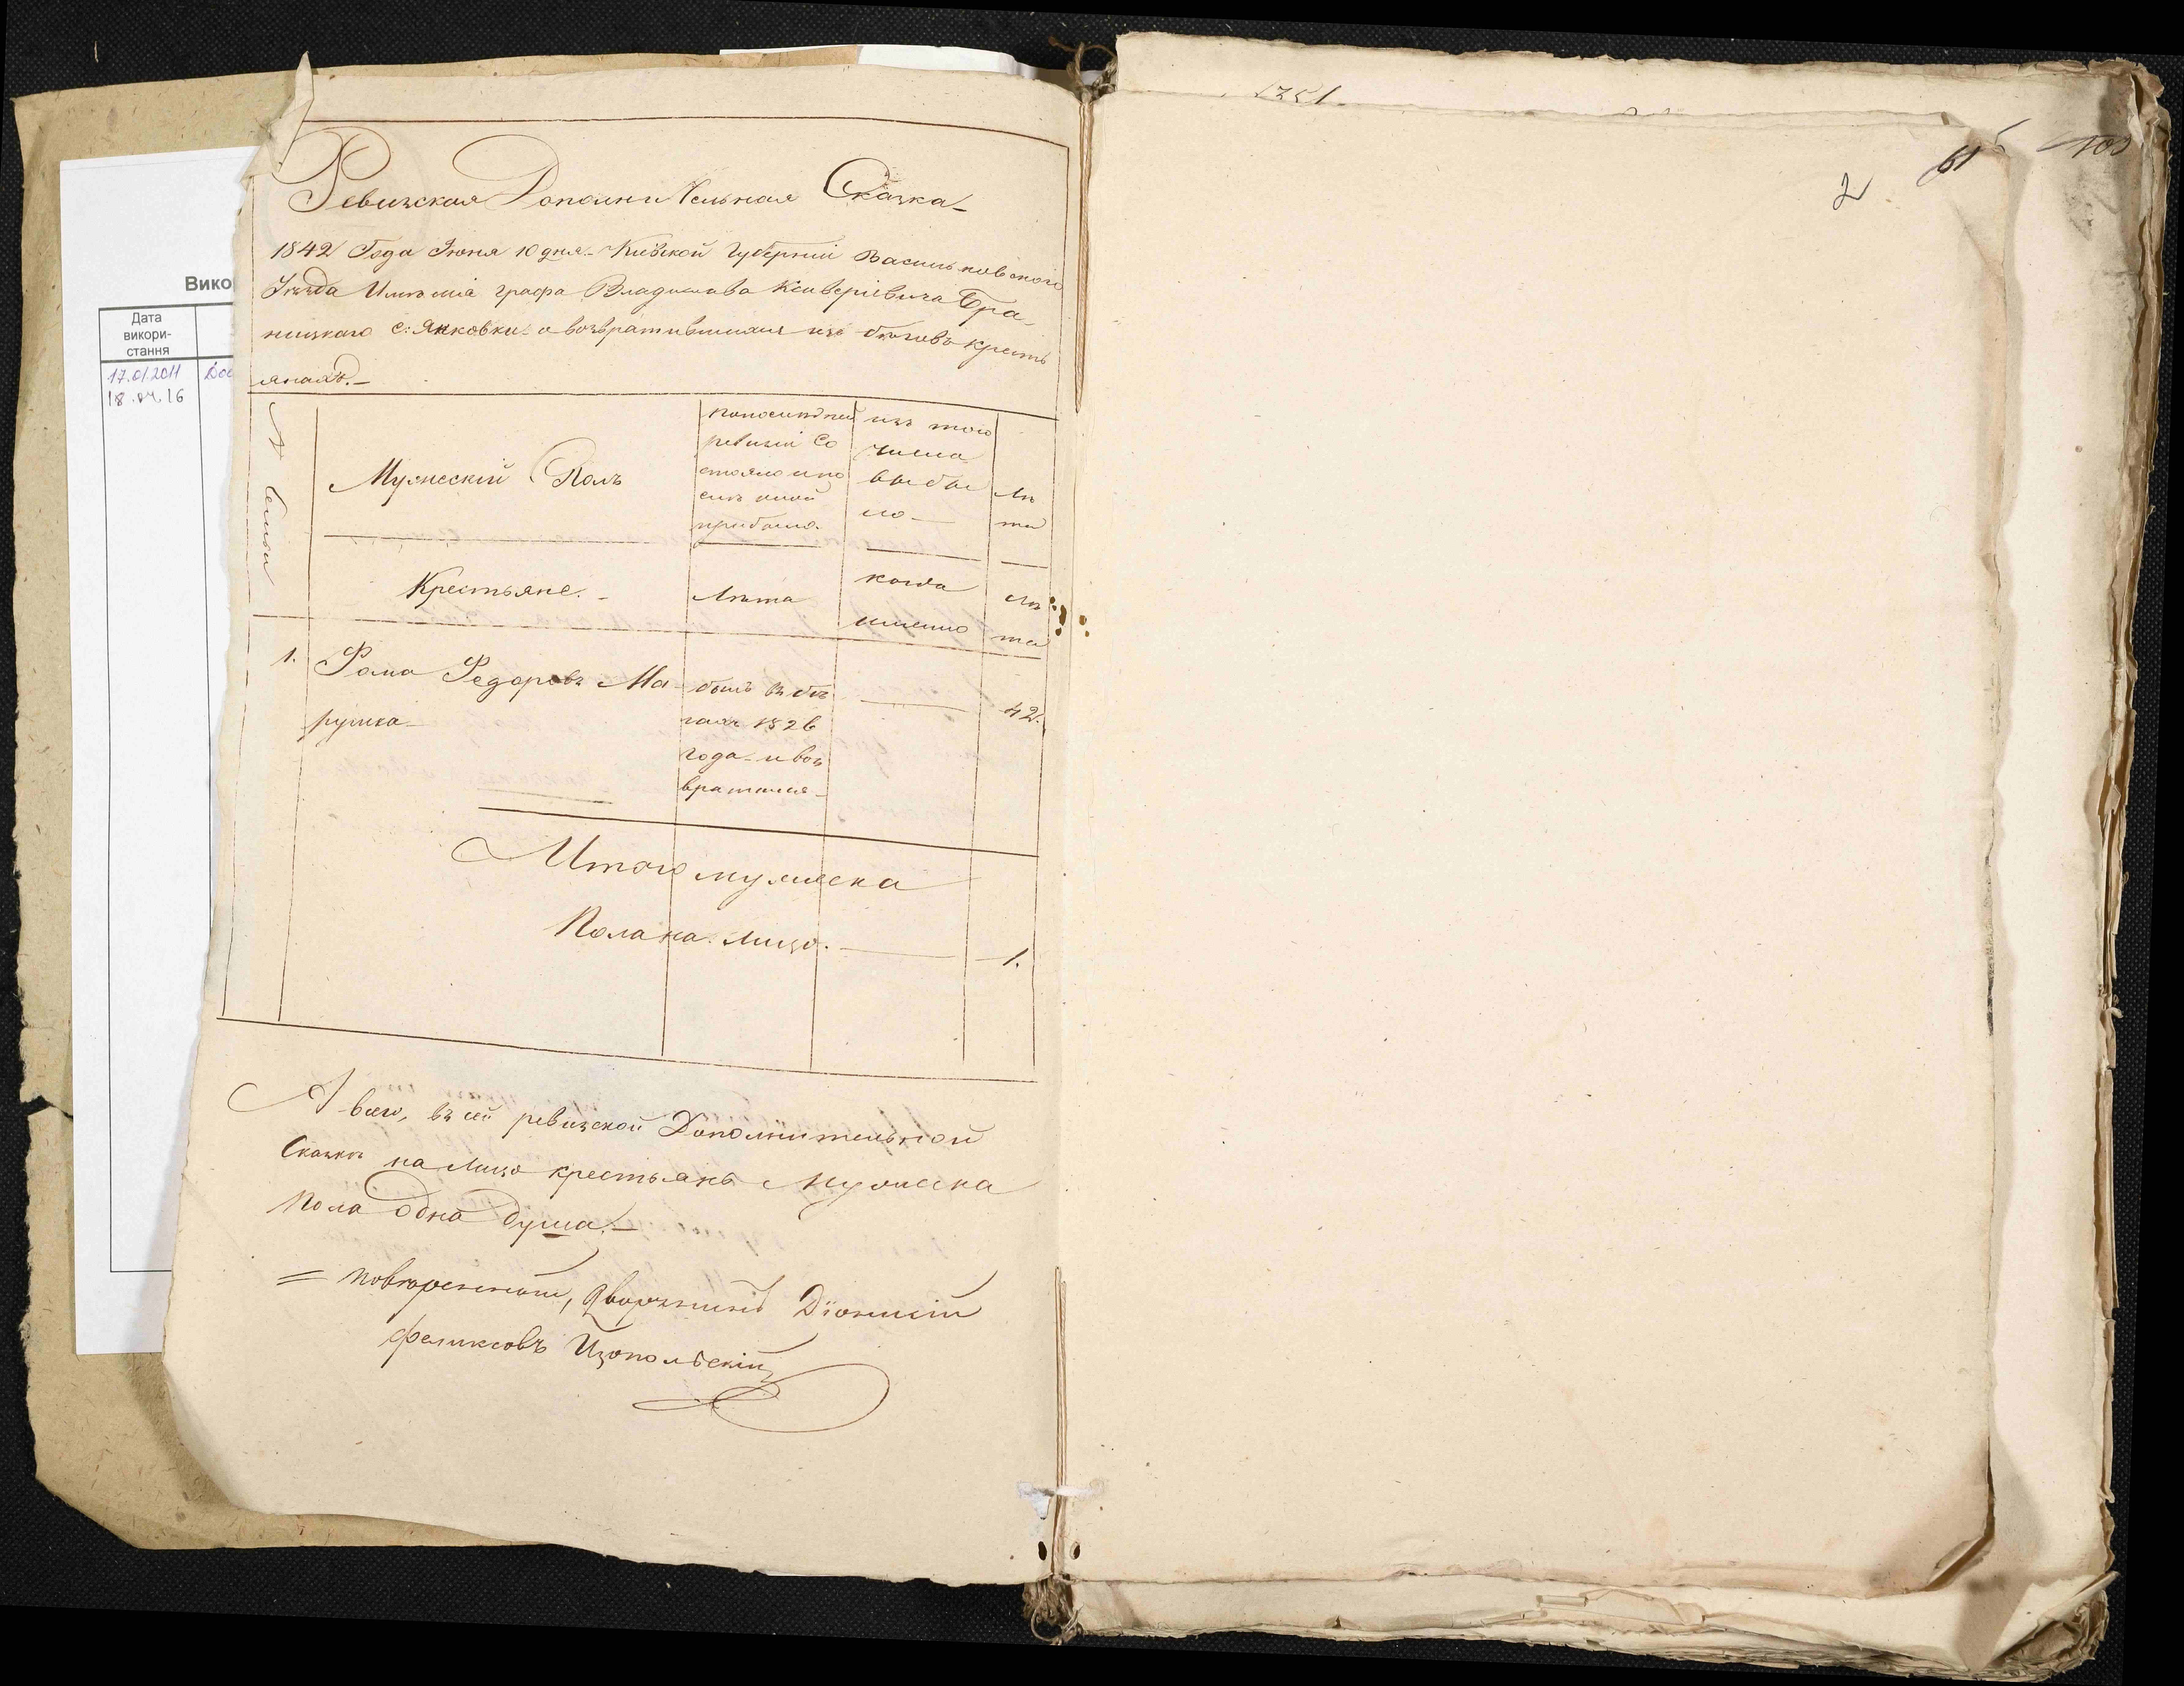 Ревизская Дополнительная Сказка
1842 Года Июня 10 дня. Кіевской Губерніи Васильковского
Уѣзда Имѣнія графа Владислава Ксаверіевича Бра-
ницкаго с: Янковки о возвратившихся изъ бѣговъ кресть
янахъ.
№ Семьи
Мужескій Полъ
по последней
ревизіи Со
стояло и по
слѣ оной
прибыло.
изъ того
числа
выбы
ло
Лѣ
та
Крестьяне.
Лѣта
когда
именно
лѣ
та
1. Фома Федоровъ Ма
рушка
былъ въ бѣ
гахъ 1826
года и воз
вратился
42.
Итого мужеска
Пола на лицо. 1.
А всего, въ сей ревизской Дополнительной
Сказкѣ на лицо крестьянъ мужеска
пола Одна душа.
= Повѣренный, дворянинъ Діонисій
Феликсовъ Изопольскій
Вико
Дата
викори-
стання
17.01.2011
18.04.16
1351
2
61